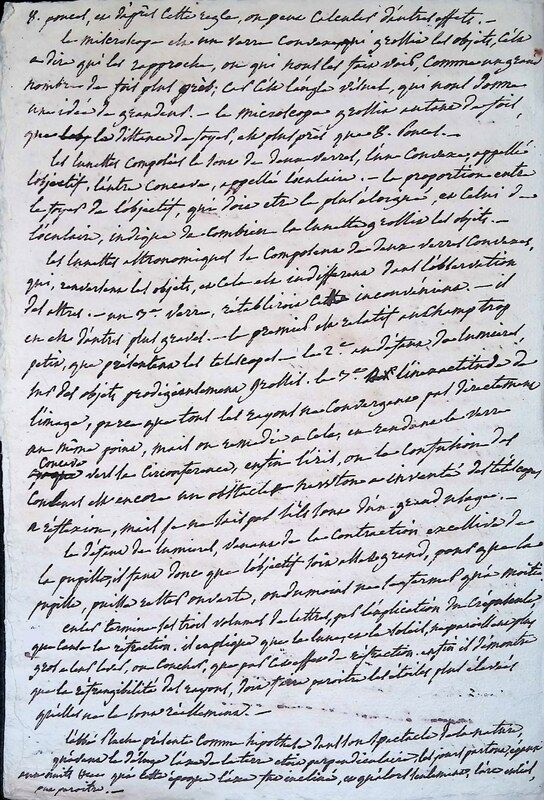 8. pouces, et d'après cette regle, on peut calculer d'autres effets. —
le microscope est un verre convexe, qui grossit les objets, c'est
a dire qui les rapproche, ou qui nous les fait voir, comme un grand
nombre de fois plus près; car c'est l'angle visuel, qui nous donne
une idée de grandeur. — le microscope grossit autant de fois,
que la distance du foyer, est plus près que 8. pouces. —
les lunettes composées le sont de deux verres, l'un convexe, appellé
l'objectif, l'autre concave, appellé l'oculaire. — la proportion entre
le foyer de l'objectif, qui doit etre le plus éloigné, et celui de
l'oculaire, indique de combien la lunette grossit les objets. —
les lunettes astronomiques se composent de deux verres convexes,
qui, renversent les objets, et cela est indifferent dans l'observation
des astres. — un 3e verre, rétabliroit cet inconvenient. — il
en est d'autres plus graves. — le premier est relatif au champ trop
petit, que présentent les telescopes. — le 2e au défaut de lumieres,
sur des objets prodigieusement grossis. le 3e l'inexactitude de
l'image, parce que tous les rayons ne convergent pas directement
au même point, mais on remedie a cela, en rendant le verre
concave vers la circonference, enfin l'iris, ou la confusion des
couleurs est encore un obstacle newton a inventé des telescopes,
a reflexion, mais je ne sais pas s'ils sont d'un grand usage. —
le défaut de lumieres, venant de la contraction excessive de
la pupille, il faut donc que l'objectif soit assez grand, pour que la
pupille, puisse rester ouverte, ou du moins ne se fermer qu'a moitié
euler termine ses trois volumes de lettres, par l'explication du crepuscule,
que cause la refraction. il explique que la lune, et le soleil, ne paroissent plus
gros a leur lever, ou coucher, que par cet effet de refraction. enfin il démontre
que la refrangibilité des rayons, doit faire paroitre les étoiles plus élevées
qu'elles ne le sont réellement. —
l'abbé Pluche présente comme hypothese dans son spectacle de la nature,
qu'avant le déluge l'axe de la terre etoit perpendiculaire, les jours partout, egaux
aux nuits que cette époque l'axe fut incliné, et qu'alors seulement, l'arc en ciel,
put paroitre. —